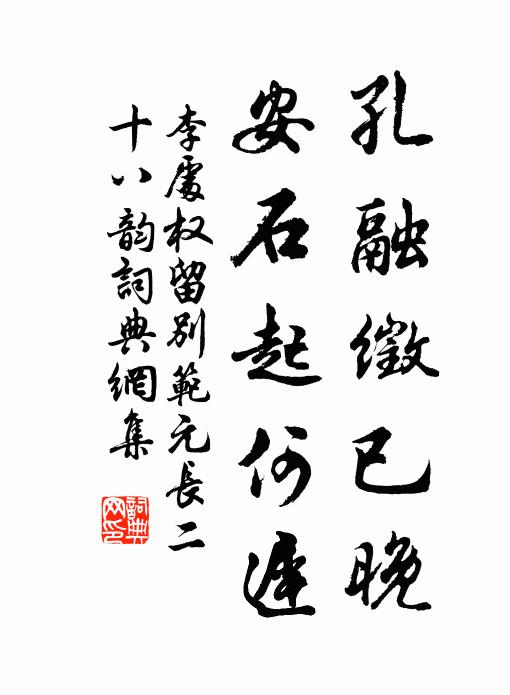 孔融徵已晚
安石起何遲
李處权留別範元長二
十八韵詞典網集
詞典
网印